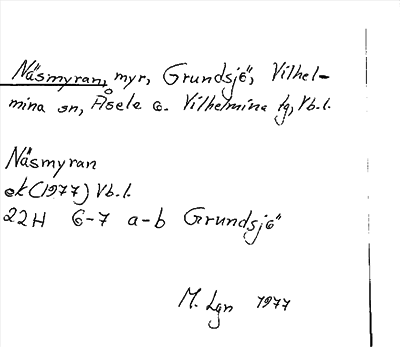 Näsmyran, myr, Grundsjö, Vilhel-
mina sn, Åsele o. Vilhelmina tg, Vb.l.
Näsmyran
ek (1977) Vb.l.
22H 6-7 a-b Grundsjö
M. Lgn 1977